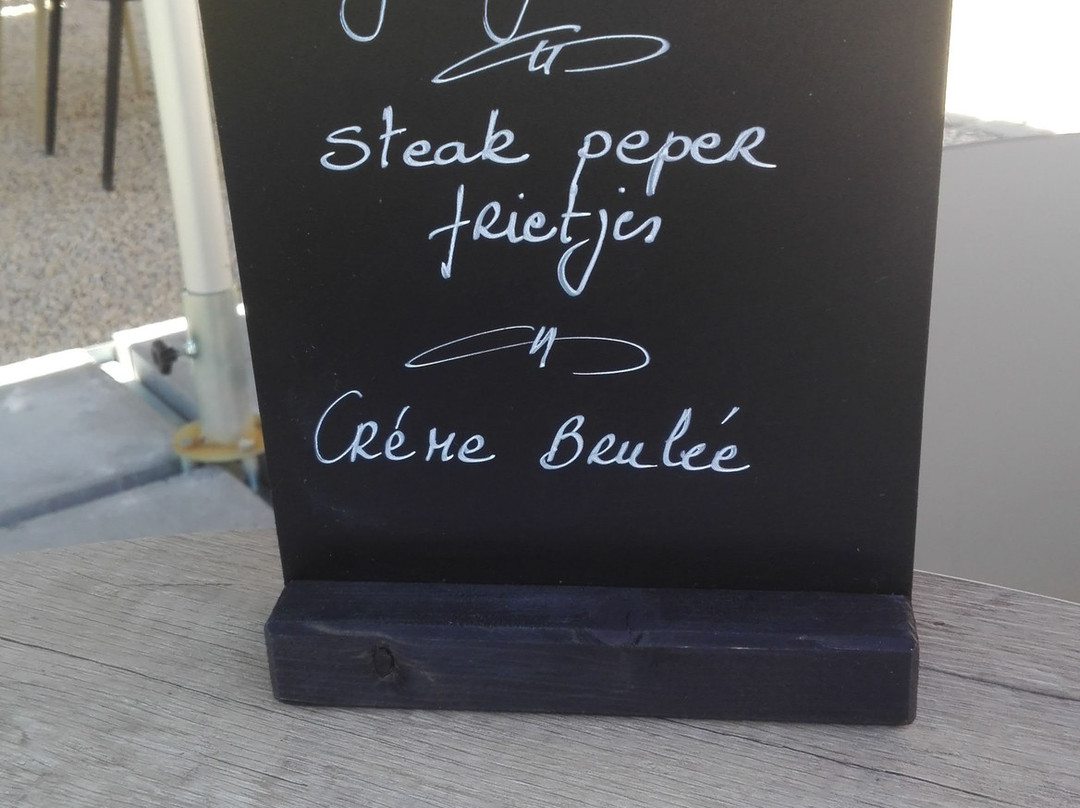 Steak peper
frietjes
Créme Bruleé